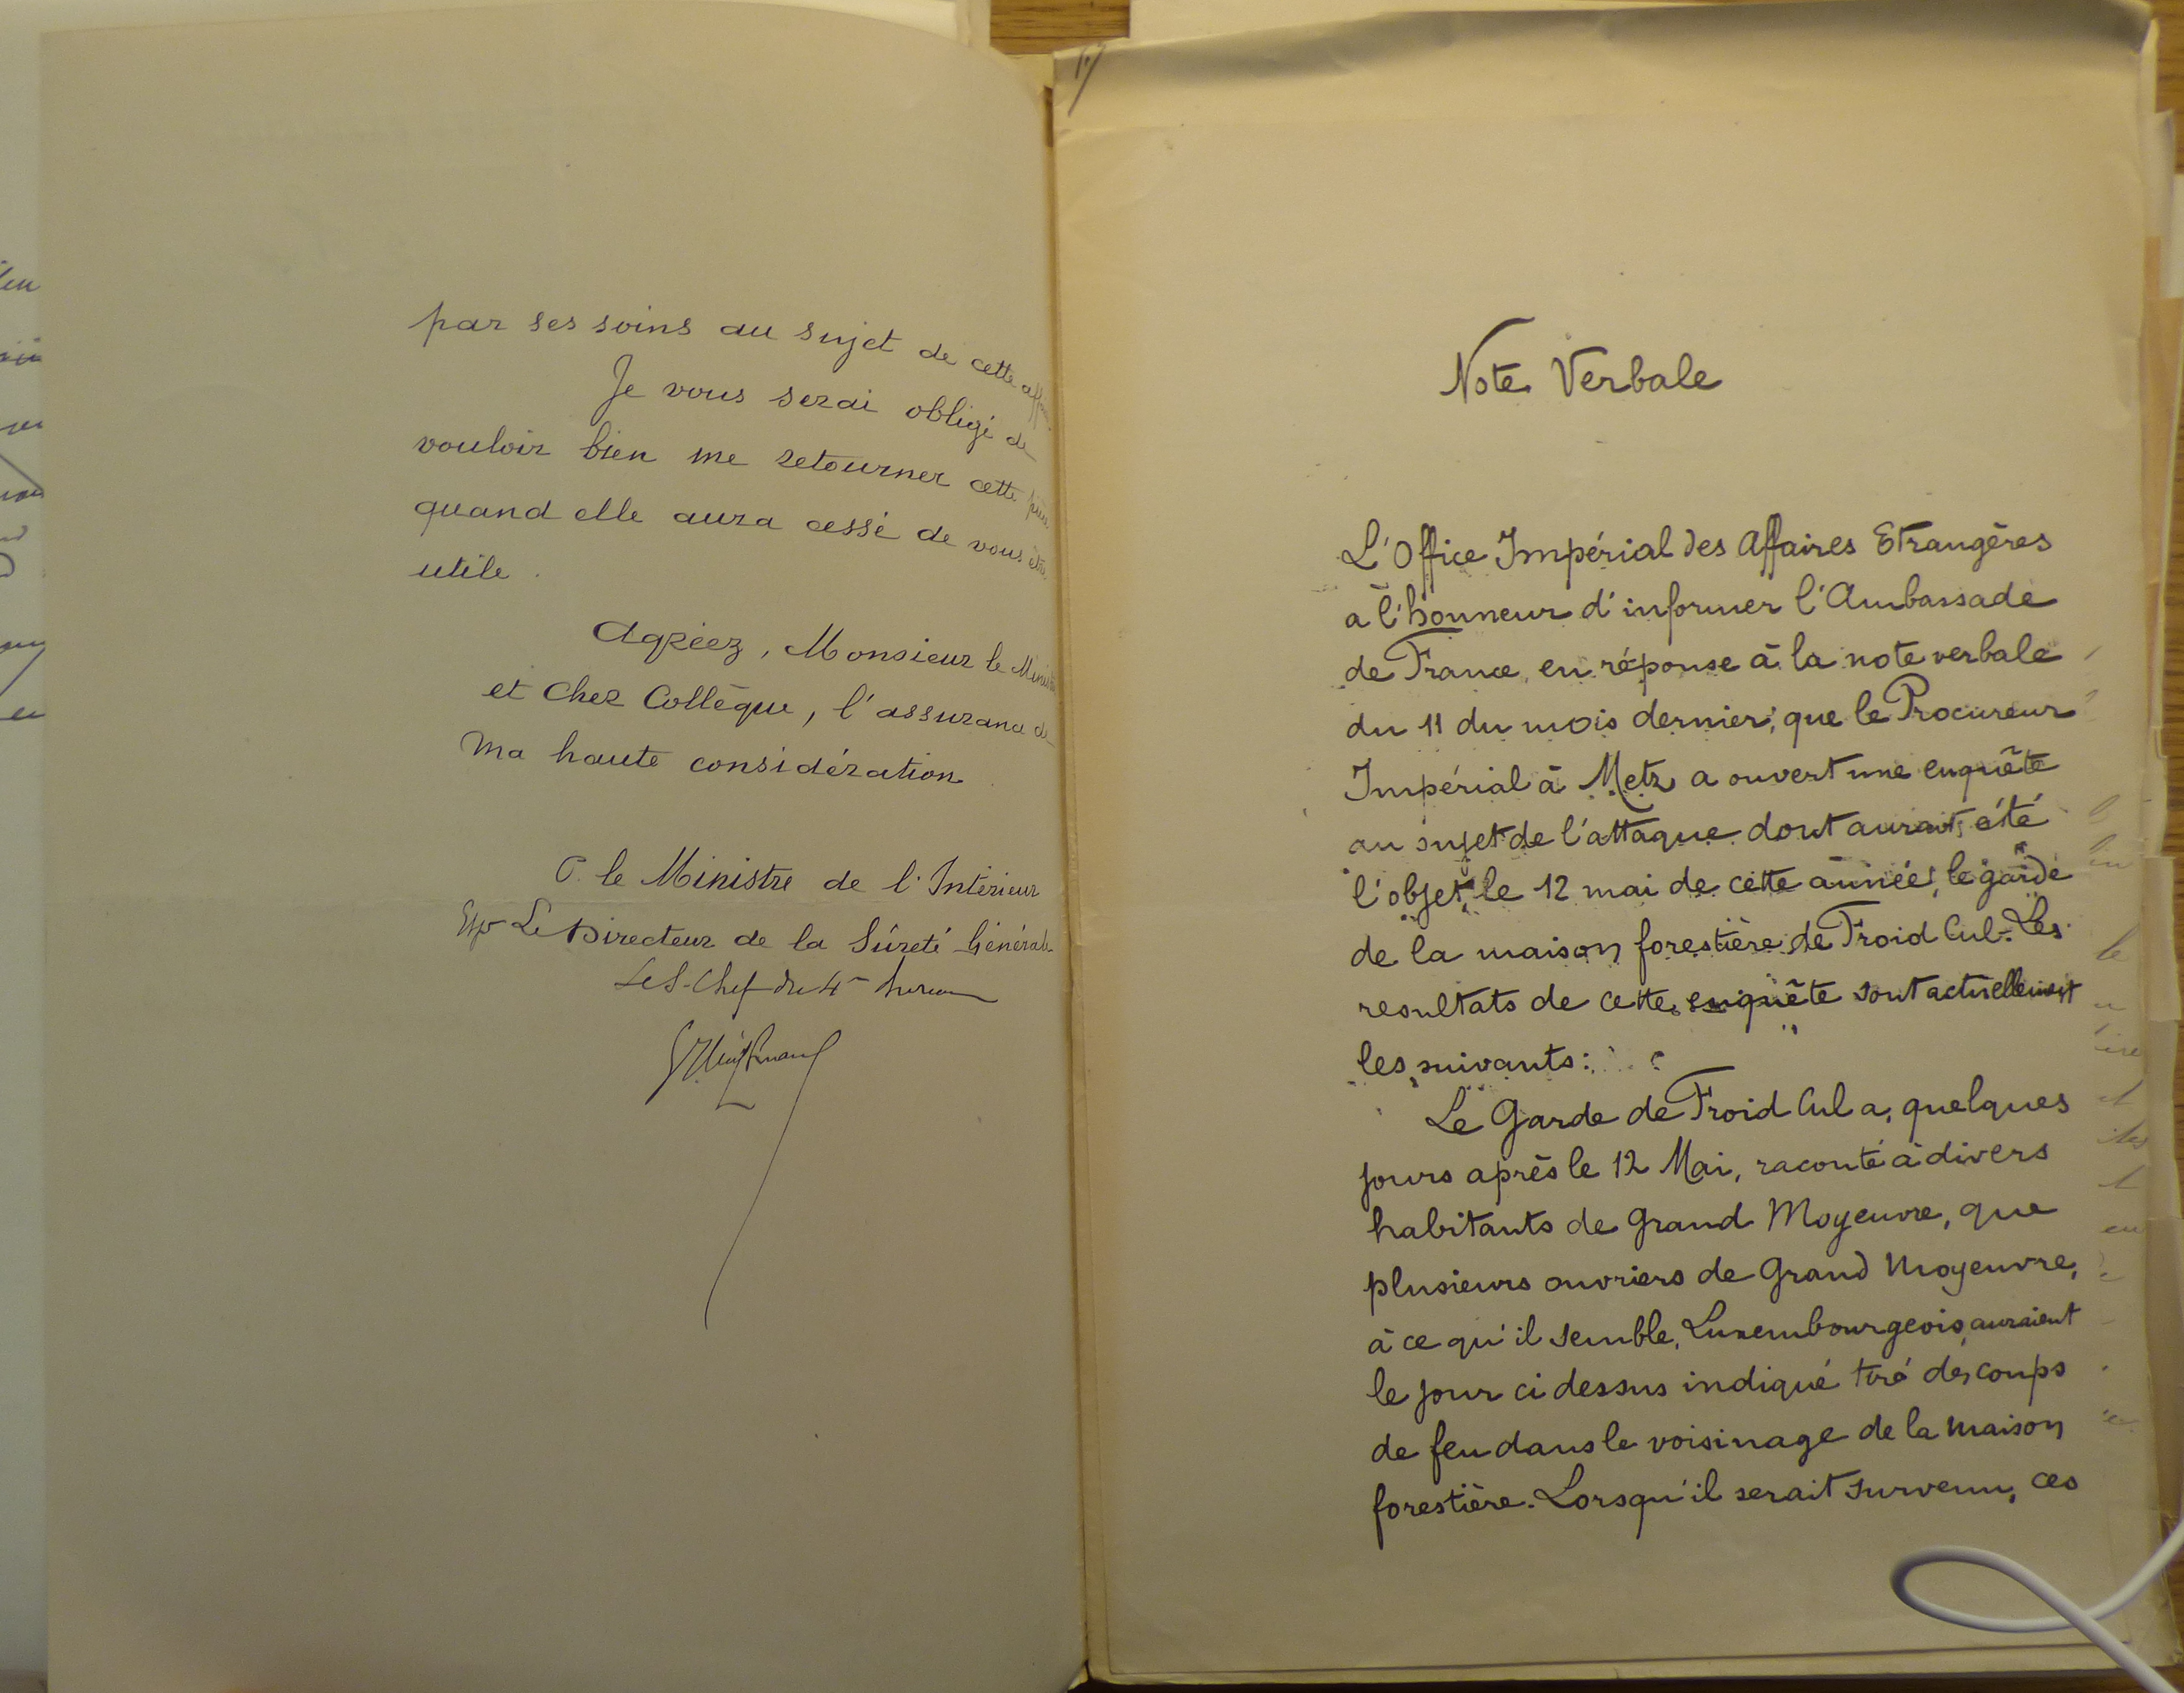 par ses soins au sujet de cette affaire.
Je vous serai obligé de
vouloir bien me retourner cette pièce
quand elle aura cessé de vous être
utile.
Agréez, Monsieur le Ministre
et Cher Collègue, l'assurance de
ma haute considération
P. le Ministre de l'Intérieur
Le Directeur de la Sûreté Générale
Le S-Chef du 4e bureau
Note Verbale
L'Office Impérial des Affaires Etrangères
a l'honneur d'informer l'Ambassade
de France, en réponse à la note verbale
du 11 du mois dernier, que le Procureur
Impérial à Metz a ouvert une enquête
au sujet de l'attaque dont aurait été
l'objet, le 12 mai de cette année, le garde
de la maison forestière de Froid Cul. Les
resultats de cette enquête sont actuellement
les suivants:
Le Garde de Froid Cul a, quelques
jours après le 12 Mai, raconté à divers
habitants de Grand Moyeuvre, que
plusieurs ouvriers de Grand Moyeuvre,
à ce qu'il semble, Luxembourgeois, auraient
le jour ci dessus indiqué tiré des coups
de feu dans le voisinage de la maison
forestière. Lorsqu'il serait survenu, ces